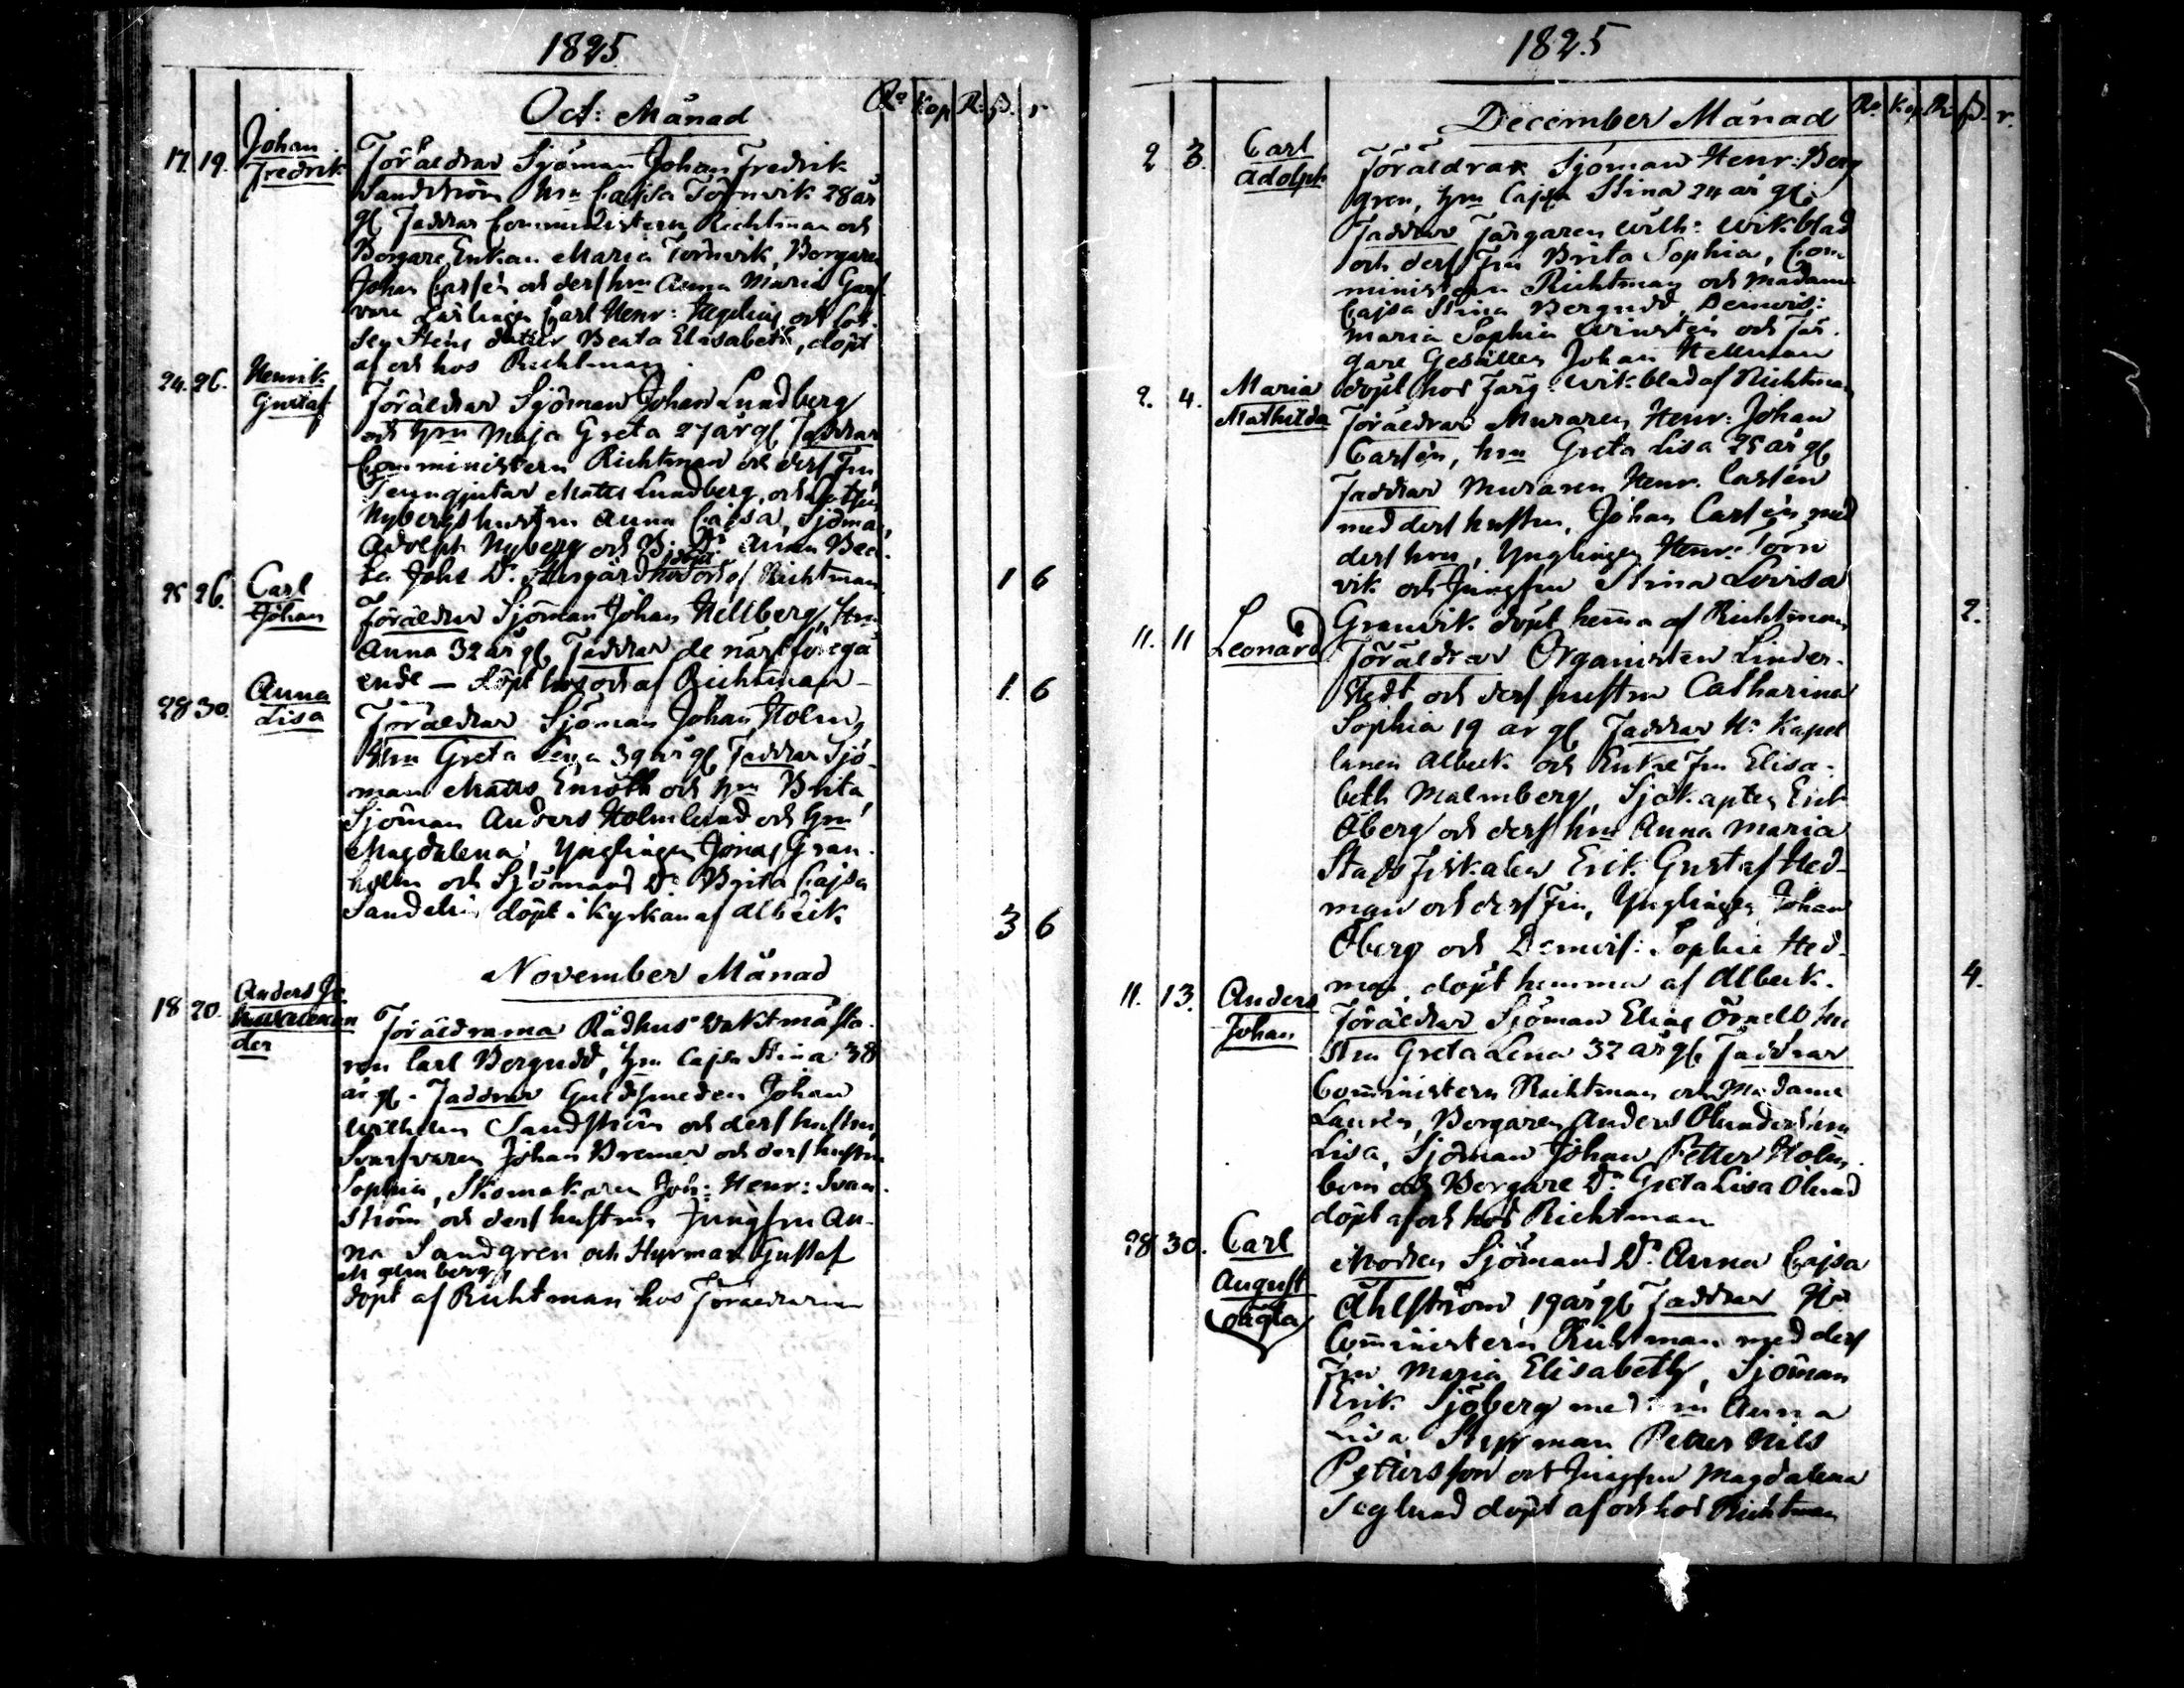 1825
Oct: Månad
Ro Kop R: β. r
17. 19. Johan Fredrik
Föräldrar Sjöman Johan Fredrik
Sandström hru Cajsa Törnvik 28 år
gl Faddrar Comministern Richtman och
Borgare Enkan Maria Törnvik, Borgaren
Johan Carlén och dess hru Anna Maria Garf
vare Lärlingen Carl Henr: Hegelius och
dotter Beata Elisabeth, döpt
af och hos Richtman.
24. 26. Henrik Gustaf
Föräldrar Sjöman Johan Lundberg
och hru Maja Greta 27 år gl Faddrar
Comministern Richtman och dess Fru
Tenngjutar Matts Lundberg, och
Nybergs hustru Anna Cajsa, Sjöman
Adolph Nyberg och Anna
Johs Dr döpt hos och af Richtman
1 6
25 26. Carl Johan
Föräldrar Sjöman Johan Hellberg, Hru
Anna 32 år gl Faddrar de näst föregå
ende — döpt hos och af Richtman —
1. 6
28 30. Anna Lisa
Föräldrar Sjöman Johan Holm,
Hru Greta Lena 39 år gl Faddrar Sjö-
man Matts Enroth och hru Brita
Sjöman Anders Holmlund och hru
Magdalena, Ynglingen Jonas Gran-
holm och Sjömans Dr Brita Cajsa
Sandelin döpt i Kyrkan af Albeck
3 6
November Månad
18 20.
Föräldrarna Rådhus Waktmästa-
ren Carl Bergudd, hru Cajsa Stina 38
år gl. Faddrar Guldsmeden Johan
Wilhelm Sandström och dess hustru,
Svarfvaren Johan Bremer och dess hustru
Sophia, Skomakaren Joh: Henr: Svan-
ström och dess hustru, Jungfru An-
na Sandgren och Styrman Gustaf
Malmberg
döpt af Richtman hos Föräldrarna
1825
December Månad
Ro. Kop R: β. r.
2 3. Carl Adolph
Föräldrar Sjöman Henr: Berg
gren, hru Cajsa Stina 24 år gl.
Faddrar Färgaren Wilh: Wikblad
och dess Fru Brita Sophia, Com
ministern Richtman och Madame
Cajsa Stina Bergudd, Demois:
Maria Sophia och Fär-
gare Gesällen Johan Hellman
döpt hos Färg: Wikblad af Richtman
2. 4. Maria Mathilda
Föräldrar Muraren Henr: Johan
Carlén, hru Greta Lisa 25 år gl
Faddrar Muraren Henr. Carlén
med dess hustru, Johan Carlén med
dess hru, Ynglingen Henr: Törn
vik och Jungfru Stina Lovisa
Granvik döpt hemma af Richtman
2.
11. 11 Leonard
Föräldrar Organisten Linder-
stedt och dess hustru Catharina
Sophia 19 år gl Faddrar Hr Kapel
lanen Albeck och Enke Fru Elisa-
beth Malmberg, Sjökapten Erik
Öberg och dess hru Anna Maria
Stads Fiskalen Erik Gustaf Hed-
man och dess Fru, Ynglingen Johan
Öberg och Demois: Sophie Hed-
man, döpt hemma af Albeck.
4.
11. 13. Anders Johan
Föräldrar Sjöman Elias Örnell hu
stru Greta Lena 32 år gl Faddrar
Comministern Richtman och Madame
Laurén, Borgaren Anders Ölund
Lisa, Sjöman Johan Petter Holm-
bom och Borgare Dr Greta Lisa Ölund
döpt af och hos Richtman
28 30. Carl August oägta
Modren Sjömans Dr. Anna Cajsa
Åhlström, 19 år gl Faddrar Hr
Comministern Richtman med dess
Fru Maria Elisabeth, Sjöman
Erik Sjöberg med hru Anna
Lisa Styrman Petter Nils
Pettersson och Jungfru Magdalena
Seglund döpt af och hos Richtman